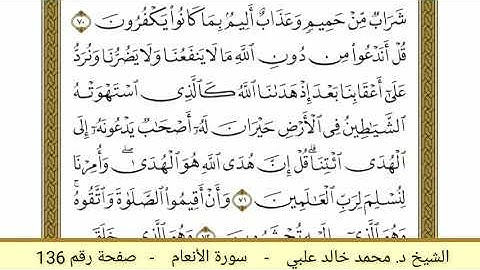 شَرَابٌ مِّنْ حَمِيمٍ وَعَذَابٌ أَلِيمٌۢ بِمَا كَانُوا۟ يَكْفُرُونَ ٧٠
قُلْ أَنَدْعُوا۟ مِن دُونِ ٱللَّهِ مَا لَا يَنفَعُنَا وَلَا يَضُرُّنَا وَنُرَدُّ
عَلَىٰٓ أَعْقَابِنَا بَعْدَ إِذْ هَدَىٰنَا ٱللَّهُ كَٱلَّذِى ٱسْتَهْوَتْهُ
ٱلشَّيَٰطِينُ فِى ٱلْأَرْضِ حَيْرَانَ لَهُۥٓ أَصْحَٰبٌ يَدْعُونَهُۥٓ إِلَى
ٱلْهُدَى ٱئْتِنَا ۗ قُلْ إِنَّ هُدَى ٱللَّهِ هُوَ ٱلْهُدَىٰ ۖ وَأُمِرْنَا
لِنُسْلِمَ لِرَبِّ ٱلْعَٰلَمِينَ ٧١ وَأَنْ أَقِيمُوا۟ ٱلصَّلَوٰةَ وَٱتَّقُوهُ ۚ
وَهُوَ ٱلَّذِىٓ إِلَيْهِ تُحْشَرُونَ ٧٢ وَهُوَ ٱلَّذِى خَلَقَ
الشيخ د. محمد خالد علبي - سورة الأنعام - صفحة رقم 136